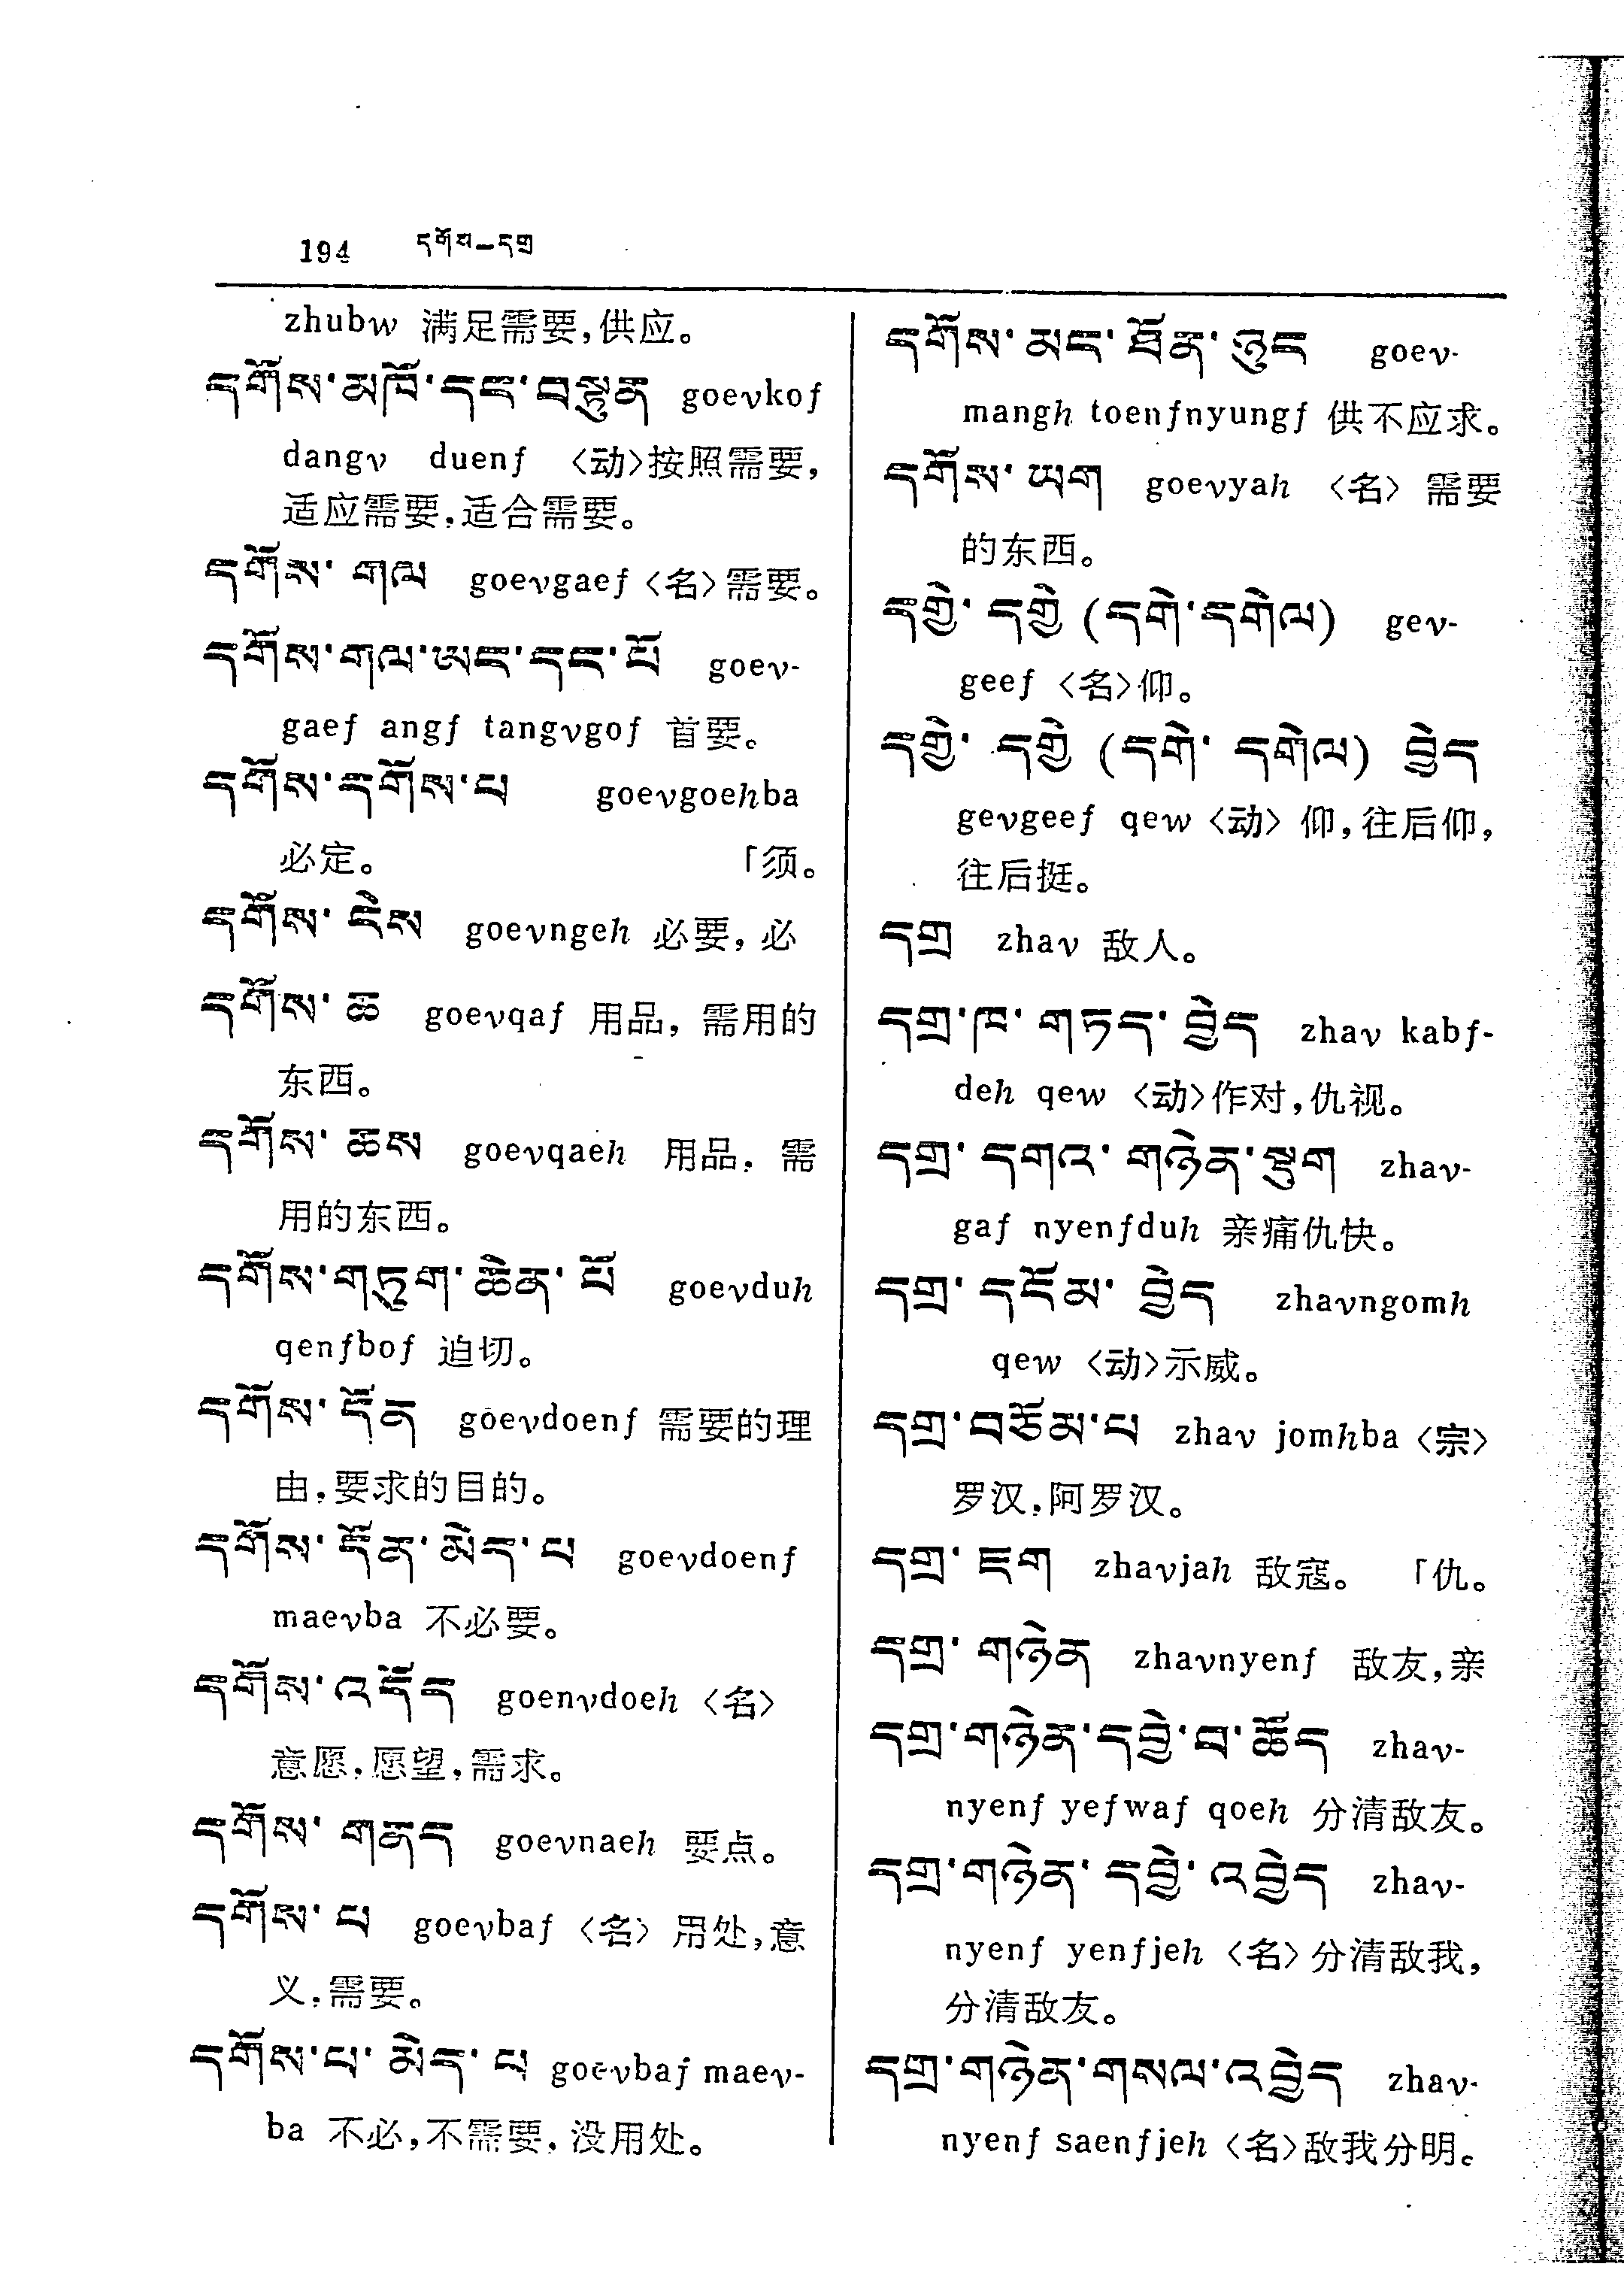 194 དགོས–དགྲ
zhubw 满足需要,供应。
དགོས་མཁོ་དང་བསྟུན goevkof
dangv duenf 〈动〉按照需要,
适应需要,适合需要。
དགོས་གལ goevgaef〈名〉需要。
དགོས་གལ་ཨང་དང་པོ goev-
gaef angf tangvgof 首要。
དགོས་དགོས་པ goevgoehba
必定。 「须。
དགོས་ངེས goevngeh 必要,必
དགོས་ཆ goevqaf 用品, 需用的
东西。
དགོས་ཆས goevqaeh 用品, 需
用的东西。
དགོས་གཏུག་ཆེན་པོ goevduh
qenfbof 迫切。
དགོས་དོན goevdoenf 需要的理
由,要求的目的。
དགོས་དོན་མེད་པ goevdoenf
maevba 不必要。
དགོས་འདོད goenvdoeh〈名〉
意愿,愿望,需求。
དགོས་གནད goevnaeh 要点。
དགོས་པ goevbaf〈名〉用处,意
义,需要。
དགོས་པ་མེད་པ goevbaf maev-
ba 不必,不需要,没用处。
དགོས་མང་ཐོན་ཉུང goev-
mangh toenfnyungf 供不应求。
དགོས་ཡག goevyah 〈名〉 需要
的东西。
དགྱེ་དགྱེ (དགེ་དགེལ) gev-
geef〈名〉仰。
དགྱེ་དགྱེ (དགེ་དགེལ) བྱེད
gevgeef qew〈动〉仰,往后仰,
往后挺。
དགྲ zhav 敌人。
དགྲ་ཁ་གཏད་བྱེད zhav kabf-
deh qew 〈动〉作对,仇视。
དགྲ་དགའ་གཉེན་སྡུག zhav-
gaf nyenfduh 亲痛仇快。
དགྲ་དངོམ་བྱེད zhavngomh
qew 〈动〉示威。
དགྲ་བཅོམ་པ zhav jomhba〈宗〉
罗汉,阿罗汉。
དགྲ་ཇག zhavjah 敌寇。 「仇。
དགྲ་གཉེན zhavnyenf 敌友,亲
དགྲ་གཉེན་དབྱེ་བ་ཆོད zhav-
nyenf yefwaf qoeh 分清敌友。
དགྲ་གཉེན་དབྱེ་འབྱེད zhav-
nyenf yenfjeh 〈名〉分清敌我,
分清敌友。
དགྲ་གཉེན་གསལ་འབྱེད zhav-
nyenf saenfjeh〈名〉敌我分明。